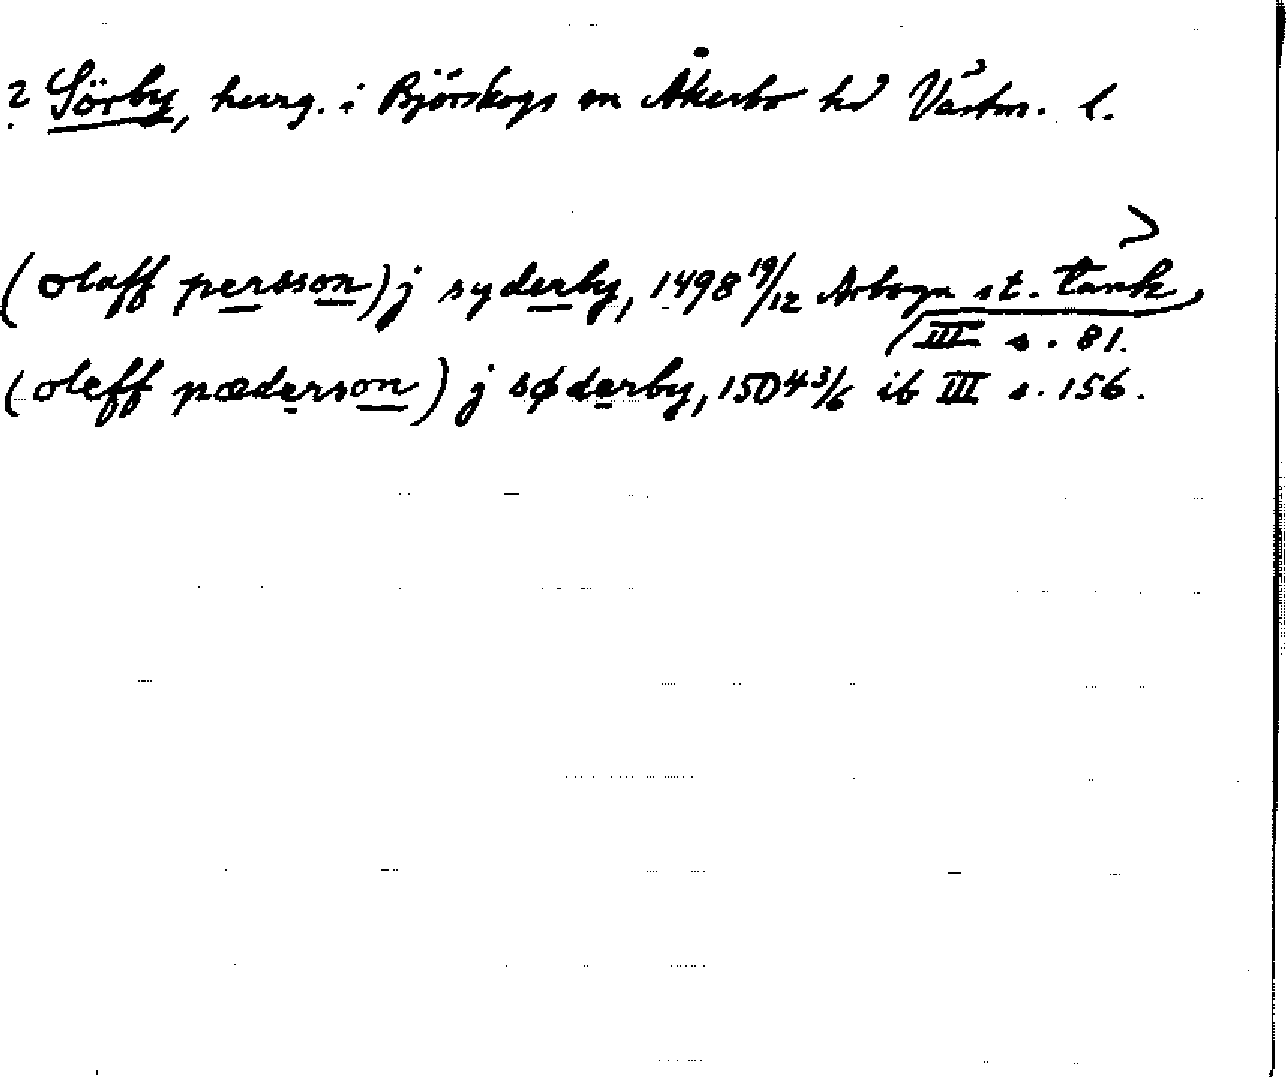 ? Sörby, herrg. i Björskogs sn Åkerbo hd Västm. l.
(olaff persson) j syderby, 1498 19/12 Arboga st. tänk
III s. 81.
(oleff pæderson) j søderby, 1504 3/6 ib III s. 156.